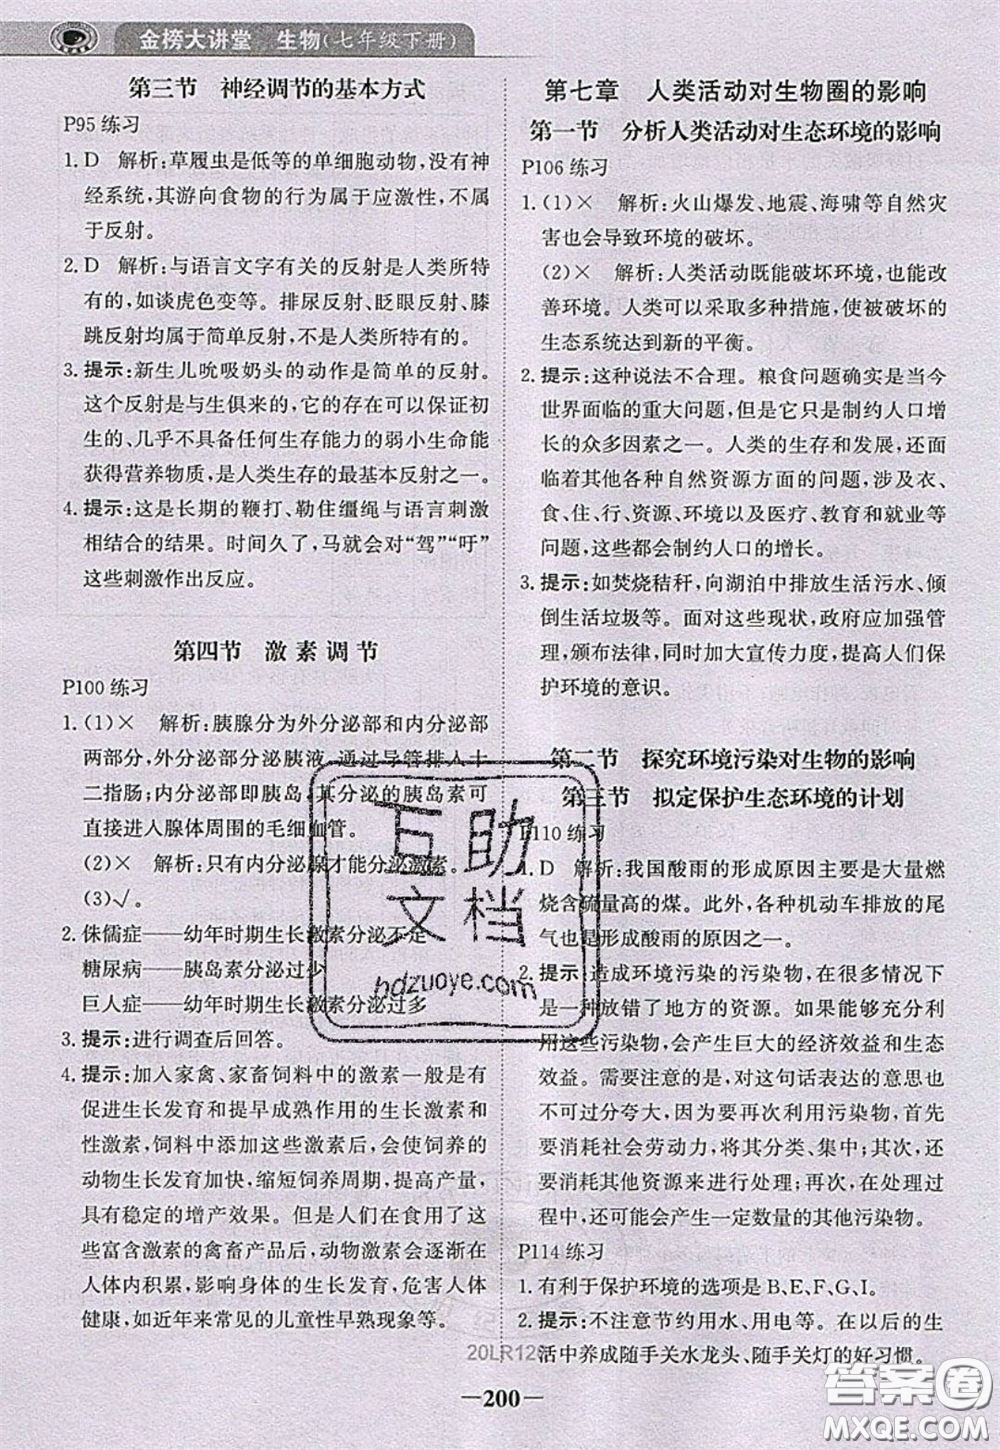 金榜大讲堂 生物(七年级下册)
第三节 神经调节的基本方式
P95 练习
1. D 解析:草履虫是低等的单细胞动物,没有神
经系统,其游向食物的行为属于应激性,不属
于反射。
2. D 解析:与语言文字有关的反射是人类所特
有的,如谈虎色变等。排尿反射、眨眼反射、膝
跳反射均属于简单反射,不是人类所特有的。
3. 提示:新生儿吮吸奶头的动作是简单的反射。
这个反射是与生俱来的,它的存在可以保证初
生的、几乎不具备任何生存能力的弱小生命能
获得营养物质,是人类生存的最基本反射之一。
4. 提示:这是长期的鞭打、勒住缰绳与语言刺激
相结合的结果。时间久了,马就会对“驾”“吁”
这些刺激作出反应。
第四节 激素调节
P100 练习
1. (1)× 解析:胰腺分为外分泌部和内分泌部
两部分,外分泌部分泌胰液,通过导管排入十
二指肠;内分泌部即胰岛,其分泌的胰岛素可
直接进入腺体周围的毛细血管。
(2)× 解析:只有内分泌腺才能分泌激素。
(3)√。
2. 侏儒症——幼年时期生长激素分泌不足
糖尿病——胰岛素分泌过少
巨人症——幼年时期生长激素分泌过多
3. 提示:进行调查后回答。
4. 提示:加入家禽、家畜饲料中的激素一般是有
促进生长发育和提早成熟作用的生长激素和
性激素,饲料中添加这些激素后,会使饲养的
动物生长发育快,缩短饲养周期,提高产量,
具有稳定的增产效果。但是人们在食用了这
些富含激素的禽畜产品后,动物激素会逐渐在
人体内积累,影响身体的生长发育,危害人体
健康。如近年来常见的儿童性早熟现象等。
第七章 人类活动对生物圈的影响
第一节 分析人类活动对生态环境的影响
P106 练习
1. (1)× 解析:火山爆发、地震、海啸等自然灾
害也会导致环境的破坏。
(2)× 解析:人类活动既能破坏环境,也能改
善环境。人类可以采取多种措施,使被破坏的
生态系统达到新的平衡。
2. 提示:这种说法不合理。粮食问题确实是当今
世界面临的重大问题,但是它只是制约人口增
长的众多因素之一。人类的生存和发展,还面
临着其他各种自然资源方面的问题,诸如涉及衣、
食、住、行、资源、环境以及医疗、教育和就业等
问题,这些都会制约人口的增长。
3. 提示:如焚烧秸秆,向湖泊中排放生活污水、倾
倒生活垃圾等。面对这些现状,政府应加强管
理,颁布法律,同时加大宣传力度,提高人们保
护环境的意识。
第二节 探究环境污染对生物的影响
第三节 拟定保护生态环境的计划
P110 练习
1. D 解析:我国酸雨的形成原因主要是大量燃
烧含硫量高的煤。此外,各种机动车排放的尾
气也是形成酸雨的原因之一。
2. 提示:造成环境污染的污染物,在很多情况下
是一种放错了地方的资源。如果能够充分利
用这些污染物,会产生巨大的经济效益和生态
效益。需要注意的是,对这句话表达的意思不
可过分夸大,因为要再次利用污染物,首先
要消耗社会劳动力,将其分类、集中;其次,还
要消耗其他资源来进行处理,而且,在处理过
程中,还可能会产生一定数量的其他污染物。
P114 练习
1. 有利于保护环境的选项是 B、E、F、G、I。
2. 提示:不注意节约用水、用电等。在以后的生
活中养成随手关水龙头、随手关灯的好习惯。
互助
文档
hdzuoye.com
20LR12
—200—
答案圈
MXQE.COM